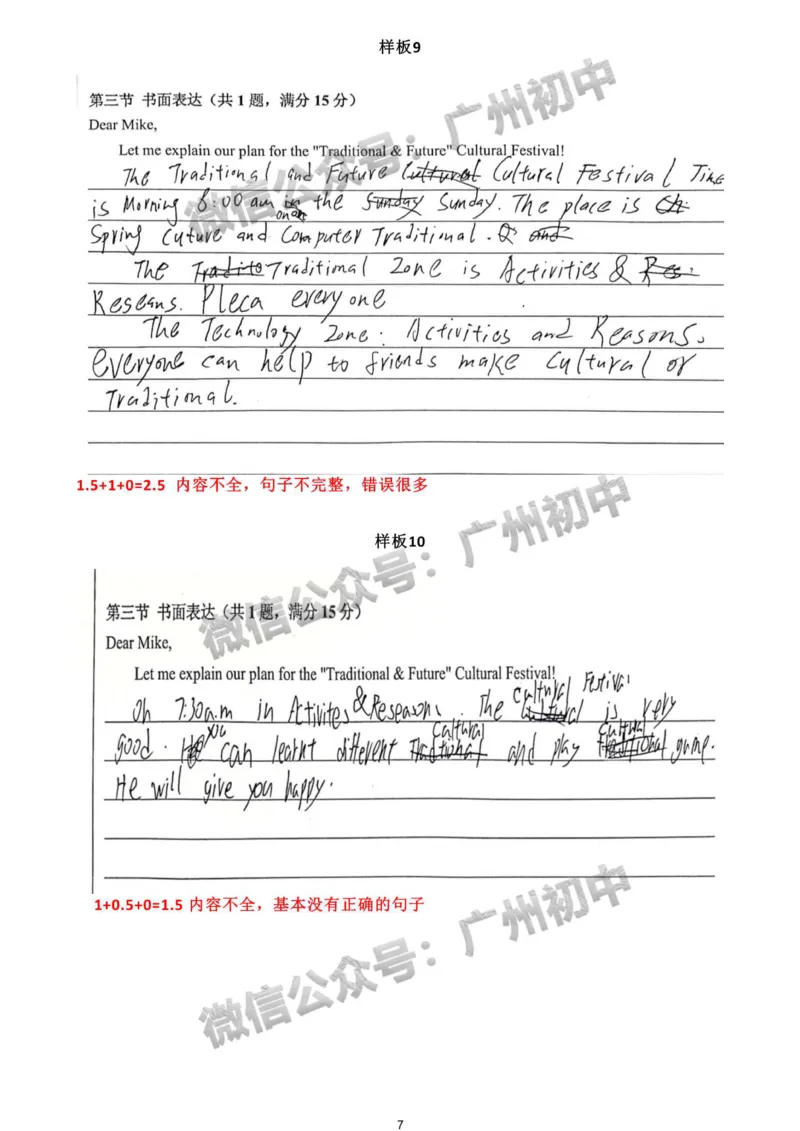 样板9
第三节 书面表达（共1题，满分15分）
Dear Mike,
Let me explain our plan for the "Traditional & Future" Cultural Festival!
The Traditional and Future Cultural Cultural Festival Time
is Morning 8:00 am on the Sunday Sunday. The place is
Spring Cuture and Computer Traditional.
The Tradito Traditional Zone is Activities & Res.
Reseans. Pleca every one
The Technology Zone: Activities and Reasons.
everyone can help to friends make Cultural or
Traditional.
1.5+1+0=2.5 内容不全，句子不完整，错误很多
样板10
第三节 书面表达（共1题，满分15分）
Dear Mike,
Let me explain our plan for the "Traditional & Future" Cultural Festival!
On 7:30a.m in Activites & Reseasons. The cultural Festival is very
good. you can learnt different cultural and play cultural game.
He will give you happy.
1+0.5+0=1.5 内容不全，基本没有正确的句子
微信公众号：广州初中
微信公众号：广州初中
微信公众号：广州初中
7